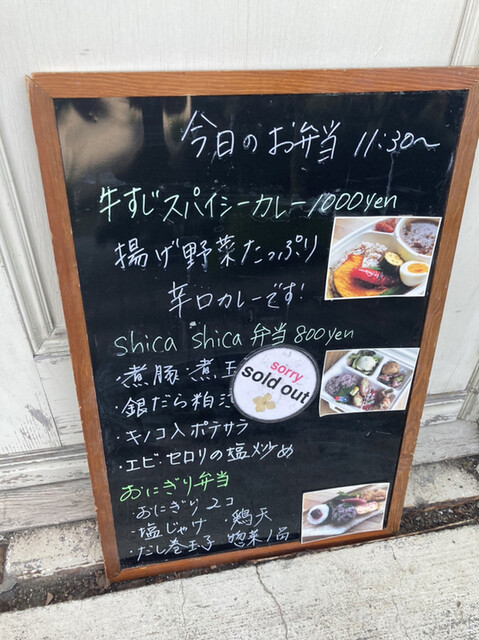 今日のお弁当 11:30〜
牛すじスパイシーカレー1000yen
揚げ野菜たっぷり
辛口カレーです!
shica shica 弁当 800yen
・煮豚・煮玉
・銀だら粕
sorry
sold out
・キノコ入ポテサラ
・エビ・セロリの塩炒め
おにぎり弁当
・おにぎり 2コ
・塩じゃけ ・鶏天
・だし巻玉子 惣菜1品